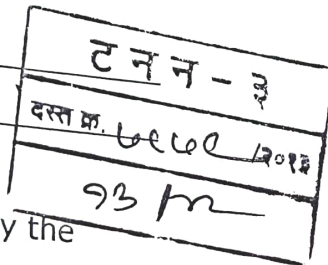 ट न न - ३
दस्त क्र. ७९७९ /२०१३
१३ /
y the